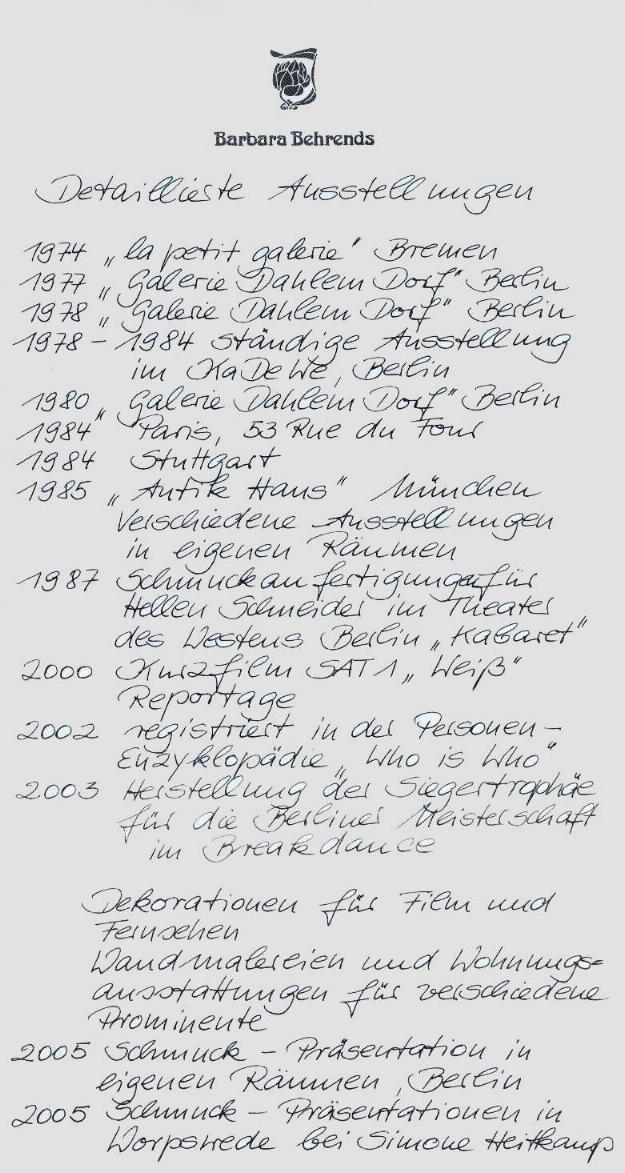 Barbara Behrends
Detaillierte Ausstellungen
1974 „la petit galerie" Bremen
1977 „Galerie Dahlem Dorf" Berlin
1978 „Galerie Dahlem Dorf" Berlin
1978 – 1984 ständige Ausstellung
im KaDeWe, Berlin
1980 „Galerie Dahlem Dorf" Berlin
1984 Paris, 53 Rue du Four
1984 Stuttgart
1985 „Antik Haus" München
Verschiedene Ausstellungen
in eigenen Räumen
1987 Schmuckanfertigungen für
Hellen Schneider im Theater
des Westens Berlin „Kabaret"
2000 Kurzfilm SAT 1 „Weiß"
Reportage
2002 registriert in der Personen-
Enzyklopädie „Who is Who"
2003 Herstellung der Siegertrophäe
für die Berliner Meisterschaft
im Breakdance
Dekorationen für Film und
Fernsehen
Wandmalereien und Wohnungs=
ausstattungen für verschiedene
Prominente
2005 Schmuck – Präsentation in
eigenen Räumen, Berlin
2005 Schmuck – Präsentationen in
Worpswede bei Simone Heitkamp